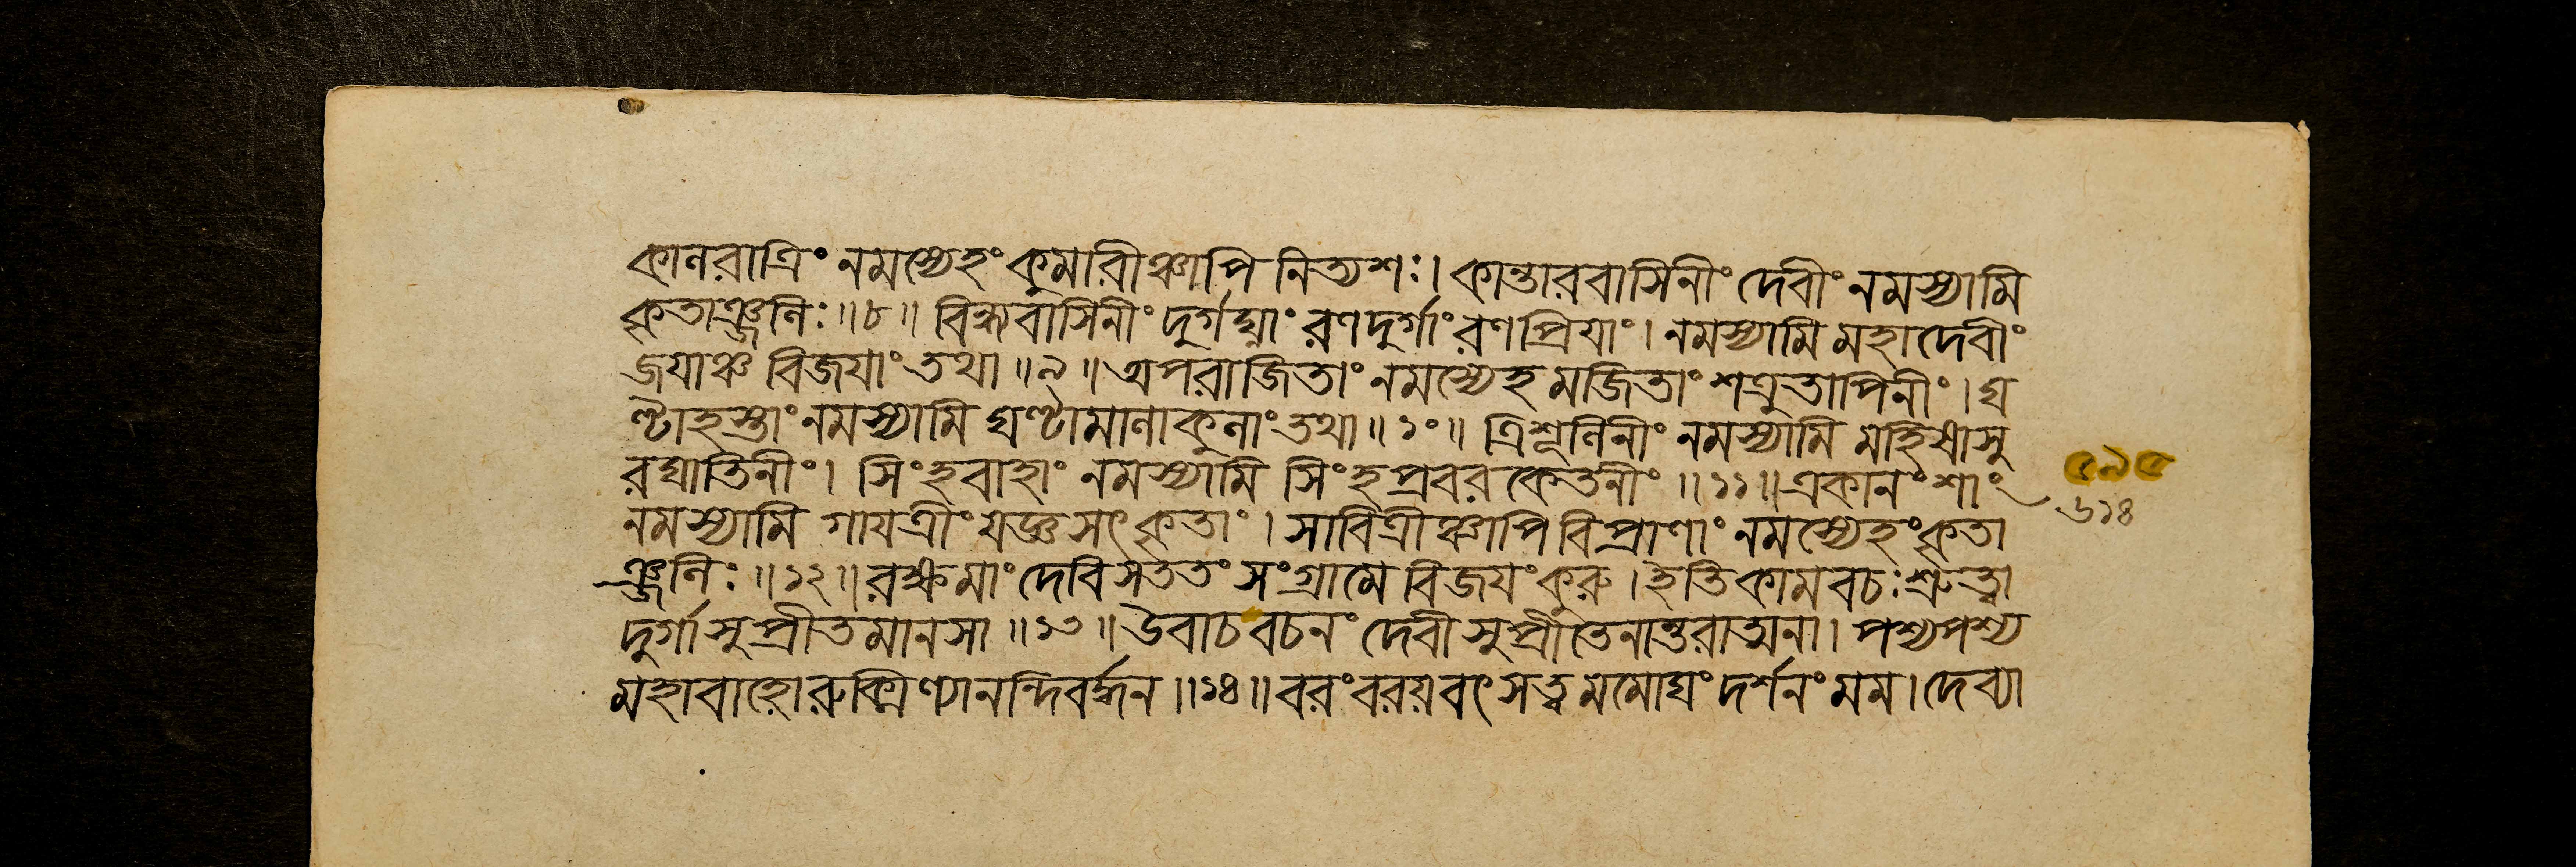 কালরাত্রিং নমস্যেহং কুমারীঞ্চাপি নিত্যশঃ। কান্তারবাসিনীং দেবীং নমস্যামি
কৃতাঞ্জলিঃ॥৮॥ বিন্ধ্যবাসিনীং দুর্গঘ্নাং রণদুর্গাং রণপ্রিয়াং। নমস্যামি মহাদেবীং
জয়াঞ্চ বিজয়াং তথা॥৯॥ অপরাজিতাং নমস্যেহ মজিতাং শত্রুতাপিনীং। ঘ
ণ্টাহস্তাং নমস্যামি ঘণ্টামালাকুলাং তথা॥১০॥ ত্রিশূলিনীং নমস্যামি মহিষাসু
রঘাতিনীং। সিংহবাহাং নমস্যামি সিংহপ্রবরকেতনীং॥১১॥ একানংশাং
নমস্যামি গায়ত্রীং যজ্ঞসৎকৃতাং। সাবিত্রীঞ্চাপি বিপ্রাণাং নমস্যেহং কৃতা
ঞ্জলিঃ॥১২॥ রক্ষ মাং দেবি সততং সংগ্রামে বিজয়ং কুরু। ইতি কামবচঃ শ্রুত্বা
দুর্গা সুপ্রীতমানসা॥১৩॥ উবাচ বচনং দেবী সুপ্রীতেনান্তরাত্মনা। পশ্য পশ্য
মহাবাহো রুক্মিণ্যানন্দিবর্দ্ধন॥১৪॥ বরং বরয় বৎস ত্বমমোঘং দর্শনং মম। দেব্যা
৬১৪